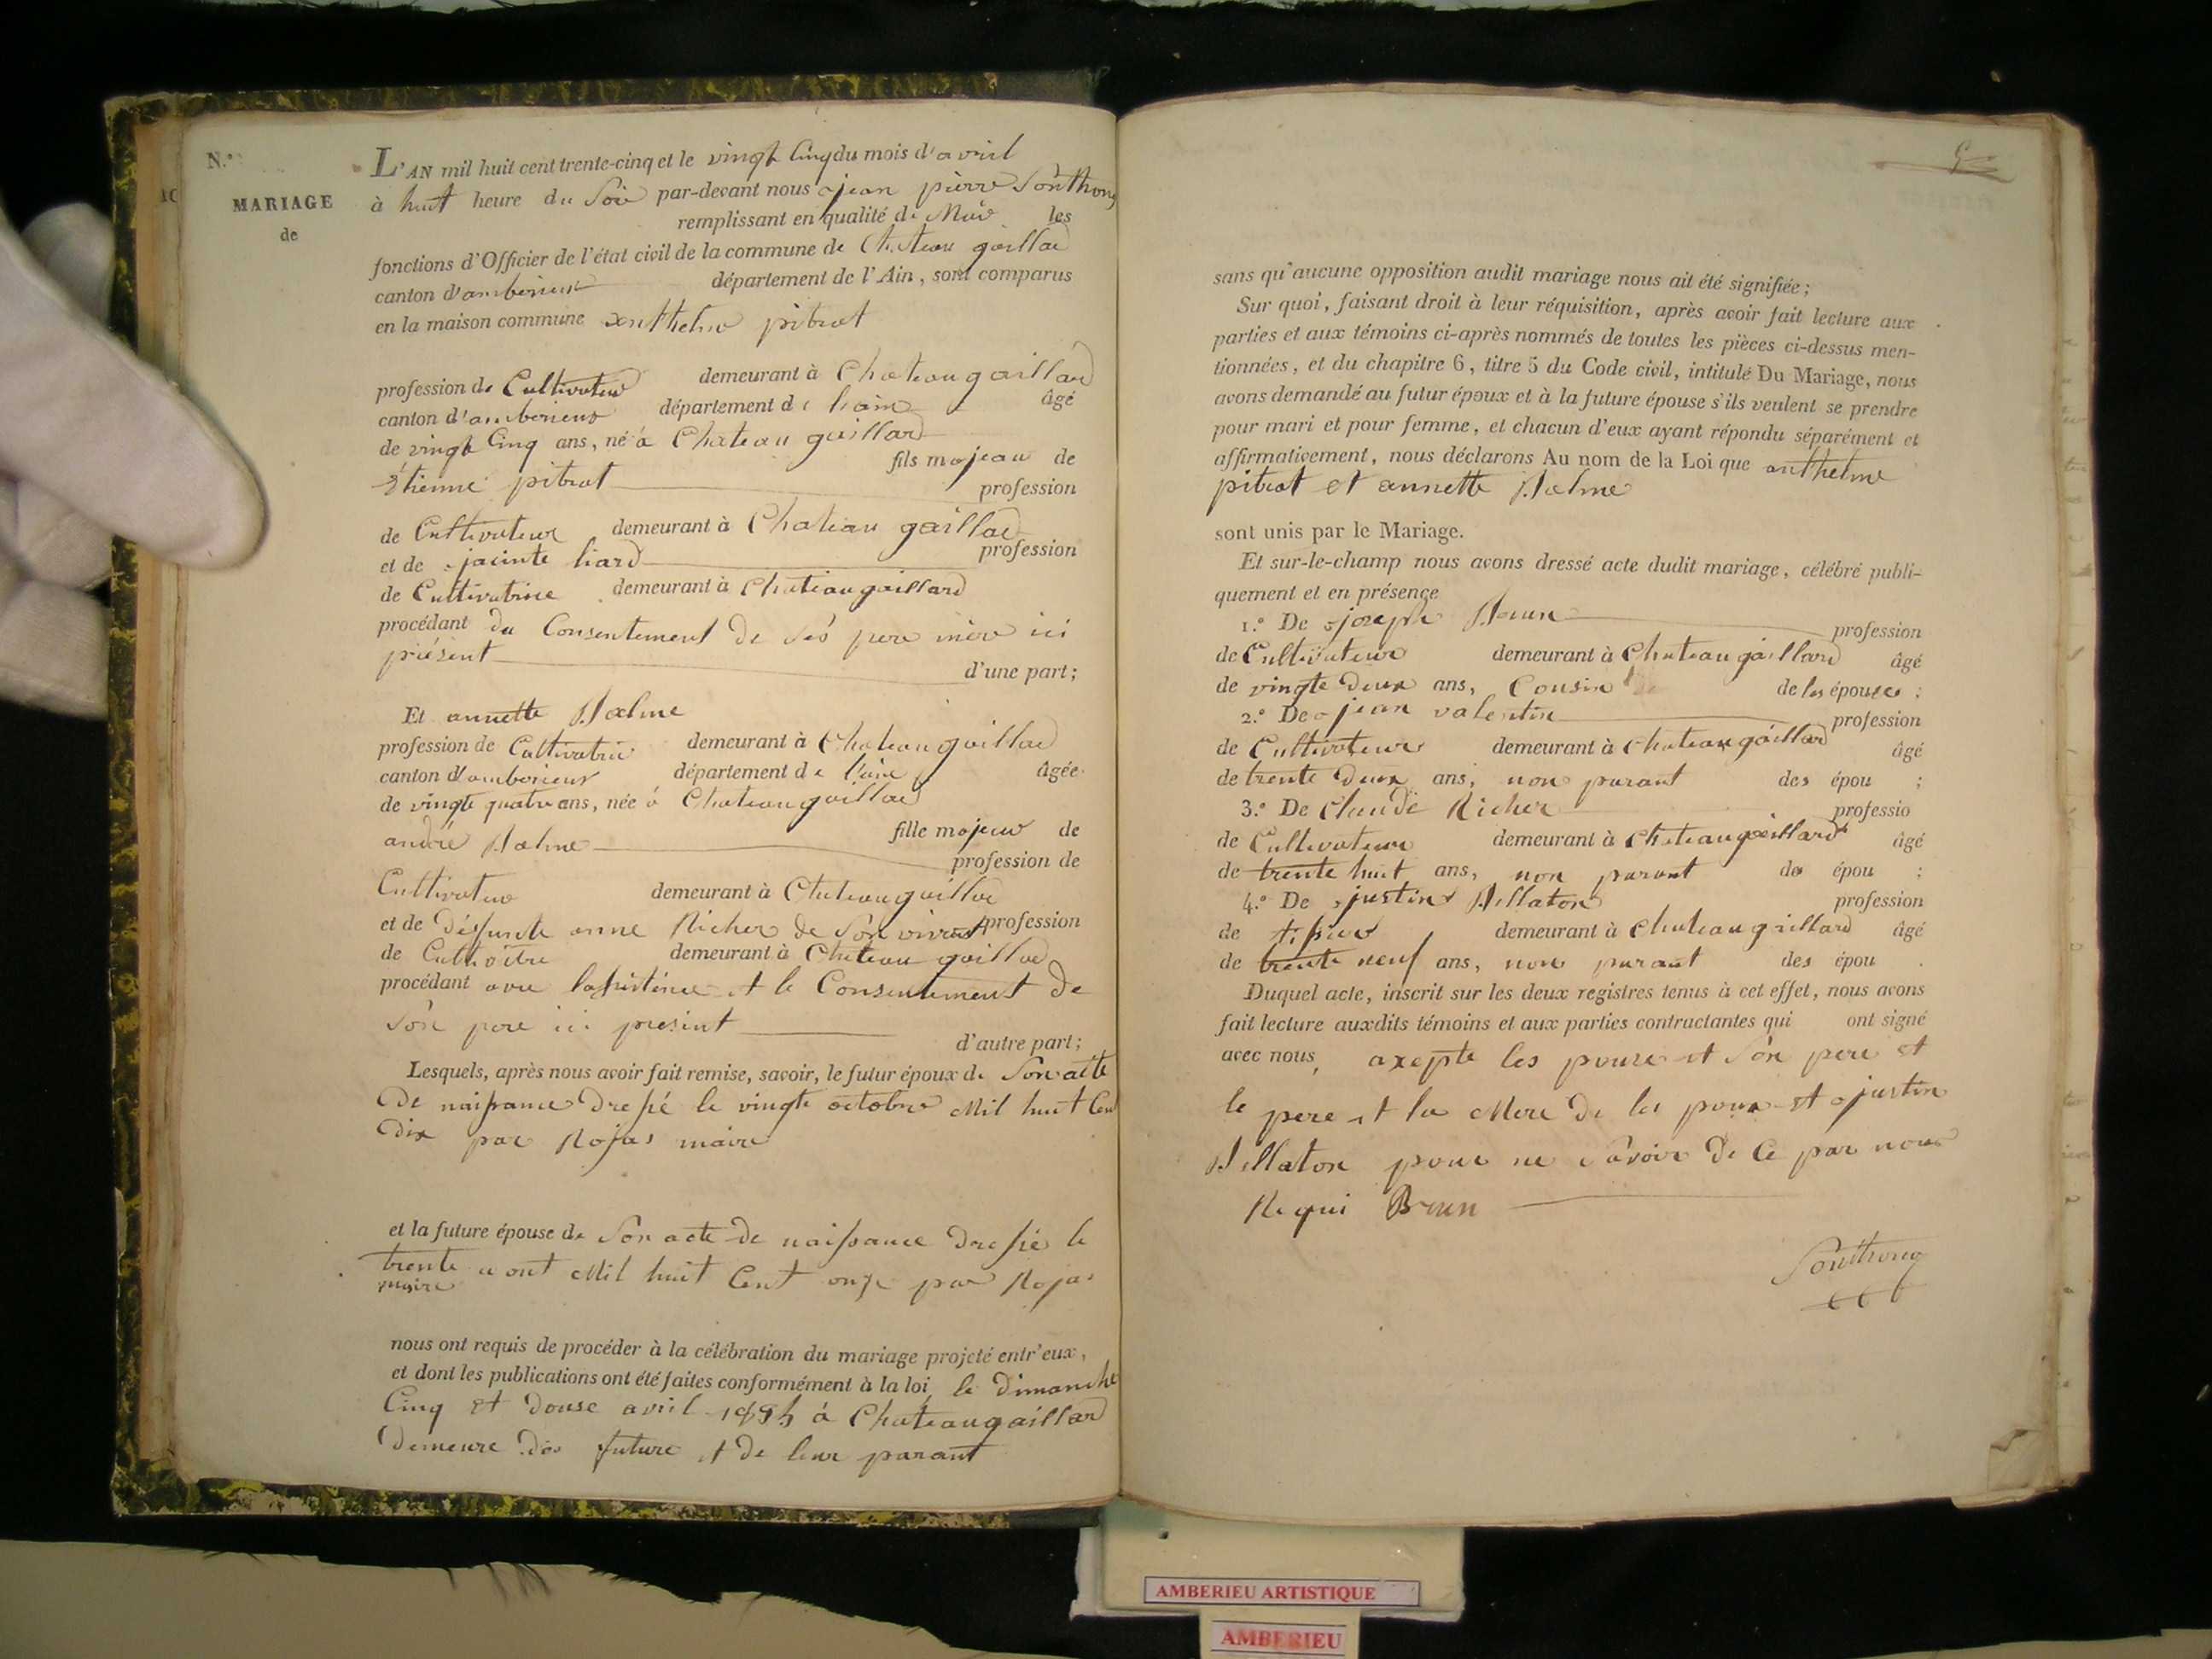 N.°
MARIAGE
de
L'AN mil huit cent trente-cinq et le vingt Cinq du mois d'avril
à huit heure du Soir par-devant nous jean pierre Sonthong
remplissant en qualité de Maire les
fonctions d'Officier de l'état civil de la commune de Chateau gaillard
canton d'amberieux département de l'Ain, sont comparus
en la maison commune anthelme pitrat
profession de Cultivateur demeurant à Chateau gaillard
canton d'amberieux département de lain âgé
de vingt Cinq ans, né à Chateau gaillard
fils majeau de
Etienne pitrat
profession
de Cultivateur demeurant à Chateau gaillard
et de jacinte liard profession
de Cultivatrice demeurant à Chateaugaillard
procédant du Consentement de Sés pere mère ici
présent
d'une part;
Et annette
profession de Cultivatrice demeurant à Chateaugaillard
canton d'amberieux département de l'ain âgée
de vingte quatre ans, née à Chateaugaillard
fille majeur de
andré
profession de
Cultivateur demeurant à Chateaugaillard
et de défunte anne Richer de Son vivant profession
de demeurant à Chateau gaillard
procédant avec lasistence et le Consentement de
Son pere ici present
d'autre part;
Lesquels, après nous avoir fait remise, savoir, le futur époux de Son acte
de naissance dressé le vingte octobre Mil huit Cent
dix par Rojas maire
et la future épouse de Son acte de naissance dressé le
trente aout Mil huit Cent onze par Rojas
maire
nous ont requis de procéder à la célébration du mariage projeté entr'eux,
et dont les publications ont été faites conformément à la loi, le Dimanche
Cinq et douse avril 1835 à Chateaugaillard
demeure dés future et de leur parant
sans qu'aucune opposition audit mariage nous ait été signifiée;
Sur quoi, faisant droit à leur réquisition, après avoir fait lecture aux
parties et aux témoins ci-après nommés de toutes les pièces ci-dessus men-
tionnées, et du chapitre 6, titre 5 du Code civil, intitulé Du Mariage, nous
avons demandé au futur époux et à la future épouse s'ils veulent se prendre
pour mari et pour femme, et chacun d'eux ayant répondu séparément et
affirmativement, nous déclarons Au nom de la Loi que anthelme
pitrat et annette
sont unis par le Mariage.
Et sur-le-champ nous avons dressé acte dudit mariage, célébré publi-
quement et en présence
1.° De joseph Brun profession
de Cultivateur demeurant à Chateaugaillard âgé
de vingte deux ans, Cousin de les épouses;
2.° De jean valentin profession
de Cultivateur demeurant à Chateaugaillard âgé
de trente deux ans, non parant des épou ;
3.° De Claude Richer professio
de Cultivateur demeurant à Chateaugaillard âgé
de trente huit ans, non parant des épou ;
4.° De justin profession
de demeurant à Chateaugaillard âgé
de trente neuf ans, non parant des épou .
Duquel acte, inscrit sur les deux registres tenus à cet effet, nous avons
fait lecture auxdits témoins et aux parties contractantes qui ont signé
avec nous, axepte les pouse et Son pere et
le pere et la Mere de les poux et justin
pour ne Savoir de Ce par nous
Requi Brun
Sonthong